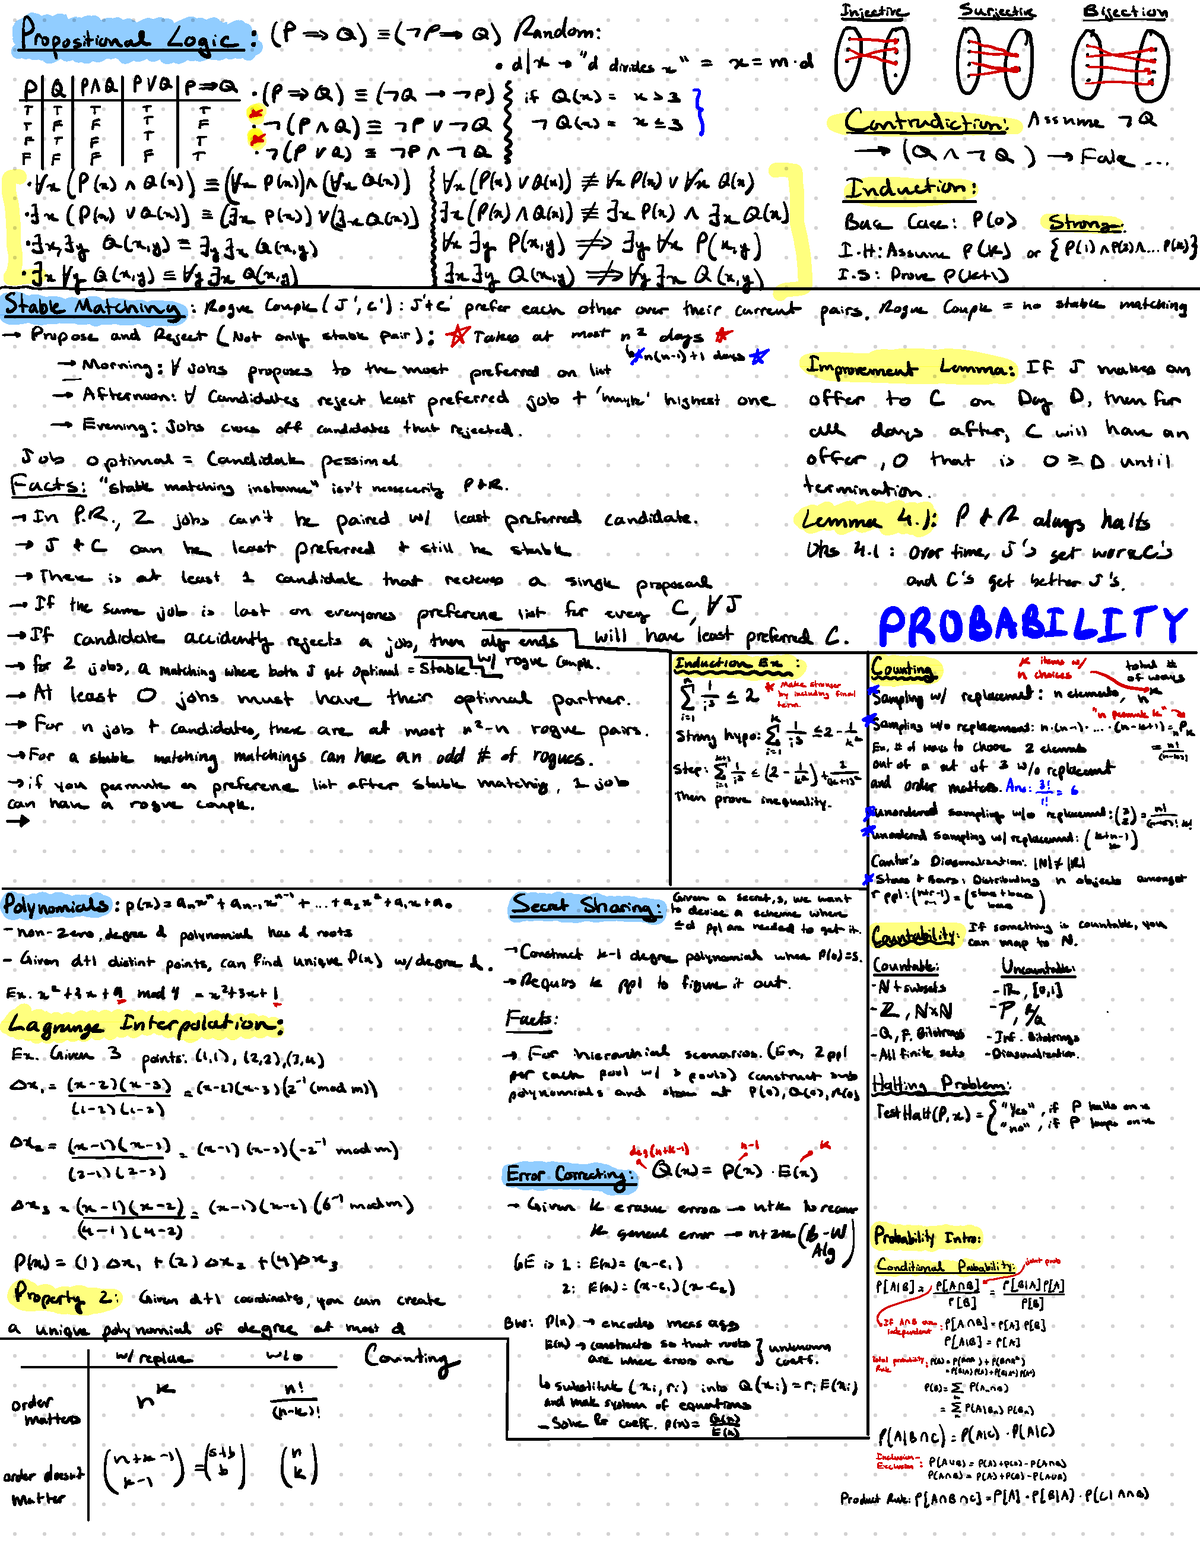 Propositional Logic: (P ⇒ Q) ≡ (¬P ⇒ Q) Random:
• d|x → "d divides x" = x = m·d
P Q P∧Q P∨Q P⇒Q
T T T T T
T F F T F
F T F T T
F F F F T
• (P ⇒ Q) ≡ (¬Q → ¬P)
• ¬(P ∧ Q) ≡ ¬P ∨ ¬Q
• ¬(P ∨ Q) ≡ ¬P ∧ ¬Q
if Q(x) = x > 3
¬Q(x) = x ≤ 3
• ∀x (P(x) ∧ Q(x)) ≡ (∀x P(x)) ∧ (∀x Q(x))
• ∃x (P(x) ∨ Q(x)) ≡ (∃x P(x)) ∨ (∃x Q(x))
• ∃x ∃y Q(x,y) ≡ ∃y ∃x Q(x,y)
• ∃x ∀y Q(x,y) ≡ ∀y ∃x Q(x,y)
∀x (P(x) ∨ Q(x)) ≢ ∀x P(x) ∨ ∀x Q(x)
∃x (P(x) ∧ Q(x)) ≢ ∃x P(x) ∧ ∃x Q(x)
∀x ∃y P(x,y) ⇏ ∃y ∀x P(x,y)
∃x ∃y Q(x,y) ⇏ ∀y ∃x Q(x,y)
Injective Surjective Bijection
Contradiction: Assume ¬Q
→ (Q ∧ ¬Q) → False ...
Induction:
Base Case: P(0) Strong
I.H: Assume P(k) or {P(1) ∧ P(2) ∧ ... P(k)}
I.S: Prove P(k+1)
Stable Matching: Rogue Couple (J', C'): J' + C' prefer each other over their current pairs, Rogue Couple = no stable matching
→ Propose and Reject (Not only stable pair): Takes at most n² days
↳ n(n-1)+1 days
→ Morning: ∀ Jobs proposes to the most preferred on list
→ Afternoon: ∀ Candidates reject least preferred job + 'maybe' highest one
→ Evening: Jobs cross off candidates that rejected.
Job optimal = Candidate pessimal
Facts: "stable matching instance" isn't necessarily P&R.
→ In P.R., 2 jobs can't be paired w/ least preferred candidate.
→ J + C can be least preferred + still be stable
→ There is at least 1 candidate that recieves a single proposal
→ If the same job is last on everyones preference list for every C, ∀J
will have least preferred C.
→ If candidate accidently rejects a job, then alg ends
w/ rogue couple.
→ for 2 jobs, a matching where both J get optimal = Stable.
→ At least 0 jobs must have their optimal partner.
→ For n job + candidates, there are at most n²-n rogue pairs.
→ For a stable matching matchings can have an odd # of rogues.
→ if you permute a preference list after stable matching, 1 job
can have a rogue couple.
→
Improvement Lemma: If J makes an
offer to C on Day D, then for
all days after, C will have an
offer, O that is O ≥ D until
termination.
Lemma 4.1: P & R always halts
Obs 4.1: Over time, J's get worse C's
and C's get better J's.
PROBABILITY
Induction Ex:
n Σ i=1 1/i³ ≤ 2
* Make stronger
by including final
term
Strong hypo: k Σ i=1 1/i³ ≤ 2 - 1/k²
Step: k+1 Σ i=1 1/i³ ≤ (2 - 1/k²) + 1/(k+1)³
Then prove inequality.
Counting
k items w/
n choices
total #
of ways
Sampling w/ replacement: n elements, n^k
"n permute k"
Sampling w/o replacement: n·(n-1)·...·(n-k+1) = P_k
= n!/(n-k)!
Ex. # of ways to choose 2 elements
out of a set of 3 w/o replacement
and order matters. Ans: 3!/1! = 6
unordered sampling w/o replacement: = n!/(n-k)! k!
unordered sampling w/ replacement: (k+n-1)
Cantor's Diagonalization: |N| ≠ |R|
Stars + Bars: Distributing n objects amongst
r ppl: (n+r-1) = (stars + bars / bars)
Countability: If something is countable, you
can map to N.
Countable: Uncountable:
- N + subsets - R, [0,1]
- Z, N×N
- Q, F. Bitstrings - Inf. Bitstrings
- All finite sets - Diagonalization.
Halting Problem:
TestHalt(P,x) = { "Yes", if P halts on x
"no", if P loops on x
Polynomials: p(x) = aₙxⁿ + aₙ₋₁xⁿ⁻¹ + ... + a₂x² + a₁x + a₀
- non-zero, degree d polynomial has d roots
- Given d+1 distint points, can find unique P(x) w/ degree d.
Ex. x² + 3x + 9 mod 4 = x² + 3x + 1
Lagrange Interpolation:
Ex. Given 3 points: (1,1), (2,2), (3,4)
Δx₁ = (x-2)(x-3) / (1-2)(1-3) = (x-2)(x-3)(2⁻¹ (mod m))
Δx₂ = (x-1)(x-3) / (2-1)(2-3) = (x-1)(x-3)(-2⁻¹ mod m)
Δx₃ = (x-1)(x-2) / (4-1)(4-2) = (x-1)(x-2)(6⁻¹ mod m)
P(x) = (1)Δx₁ + (2)Δx₂ + (4)Δx₃
Property 2: Given d+1 coordinates, you can create
a unique polynomial of degree at most d
Secret Sharing: Given a secret, s, we want
to devise a scheme where
≤d ppl are needed to get it.
→ Construct k-1 degree polynomial where P(0)=s.
→ Requires k ppl to figure it out.
Facts:
→ For hierarchial scenarios. (Ex, 2 ppl
per each pool w/ 3 pools) construct sub
polynomials and show at P(0), Q(0), R(0)
deg(n+k-1) n-1 k
Error Correcting: Q(x) = P(x) · E(x)
→ Given k erasure errors → n+k to recover
k general error → n+2k (B-W Alg)
deg E is 1: E(x) = (x-e₁)
2: E(x) = (x-e₁)(x-e₂)
BW: P(x) → encodes message
E(x) → constructs so that roots
are where errors are } unknown
coeff.
↳ substitute (xᵢ, rᵢ) into Q(xᵢ) = rᵢ E(xᵢ)
and make system of equations
- Solve for coeff. P(x) = Q(x)/E(x)
Probability Intro:
Conditional Probability: joint prob
P[A|B] = P[A∩B]/P[B] = P[B|A]P[A]/P[B]
If A∩B are independent: P[A∩B] = P[A]P[B]
P[A|B] = P[A]
Total probability Rule:
P(B) = Σ P(Aₙ∩B)
= Σ P(A|Bₙ) P(Bₙ)
P(A|B∩C) = P(A|C) · P(A|C)
Inclusion-Exclusion: P(A∪B) = P(A) + P(B) - P(A∩B)
P(A∩B) = P(A) + P(B) - P(A∪B)
Product Rule: P[A∩B∩C] = P[A] · P[B|A] · P(C|A∩B)
w/ replace w/o Counting
order
matters n^k n!/(n-k)!
order doesnt
matter (n+k-1 / k-1) = (s+b / b) (n / k)